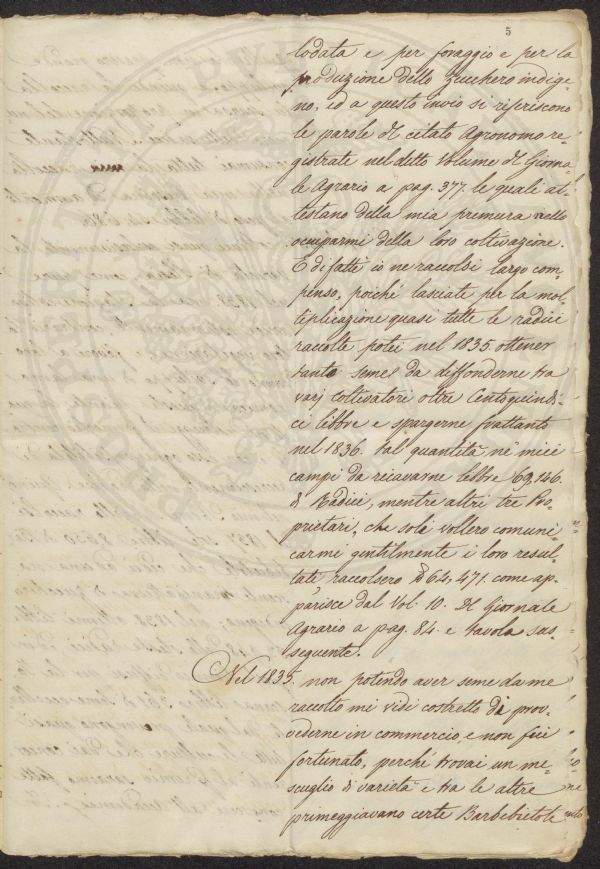 5
lodata e per foraggio e per la
produzione dello Zucchero indige=
no, ed a questo invio si riferiscono
le parole del citato Agronomo re=
gistrate nel detto Volume del Giorna=
le Agrario a pag. 377. le quali at=
testano della mia premura nello
occuparmi della loro coltivazione.
E difatti io ne raccolsi largo com=
penso, poiché lasciate per la mol=
tiplicazione quasi tutte le radici
raccolte potei nel 1835 ottener
tanto seme da diffonderne tra
varj coltivatori oltre Centoquindi=
ci libbre e spargerne frattanto
nel 1836. tal quantità ne' miei
campi da ricavarne libbre 69,146.
di Radici, mentre altri tre Pro=
prietari, che soli vollero comuni=
carmi gentilmente i loro resul=
tati raccolsero 64,471. come ap=
parisce dal Vol. 10. del Giornale
Agrario a pag. 84. e tavola sus=
seguente.
Nel 1835. non potendo aver seme da me
raccolto mi vidi costretto di prov=
vederne in commercio, e non fui
fortunato, perché trovai un me=
scuglio di varietà e tra le altre
primeggiavano certe Barbebietole